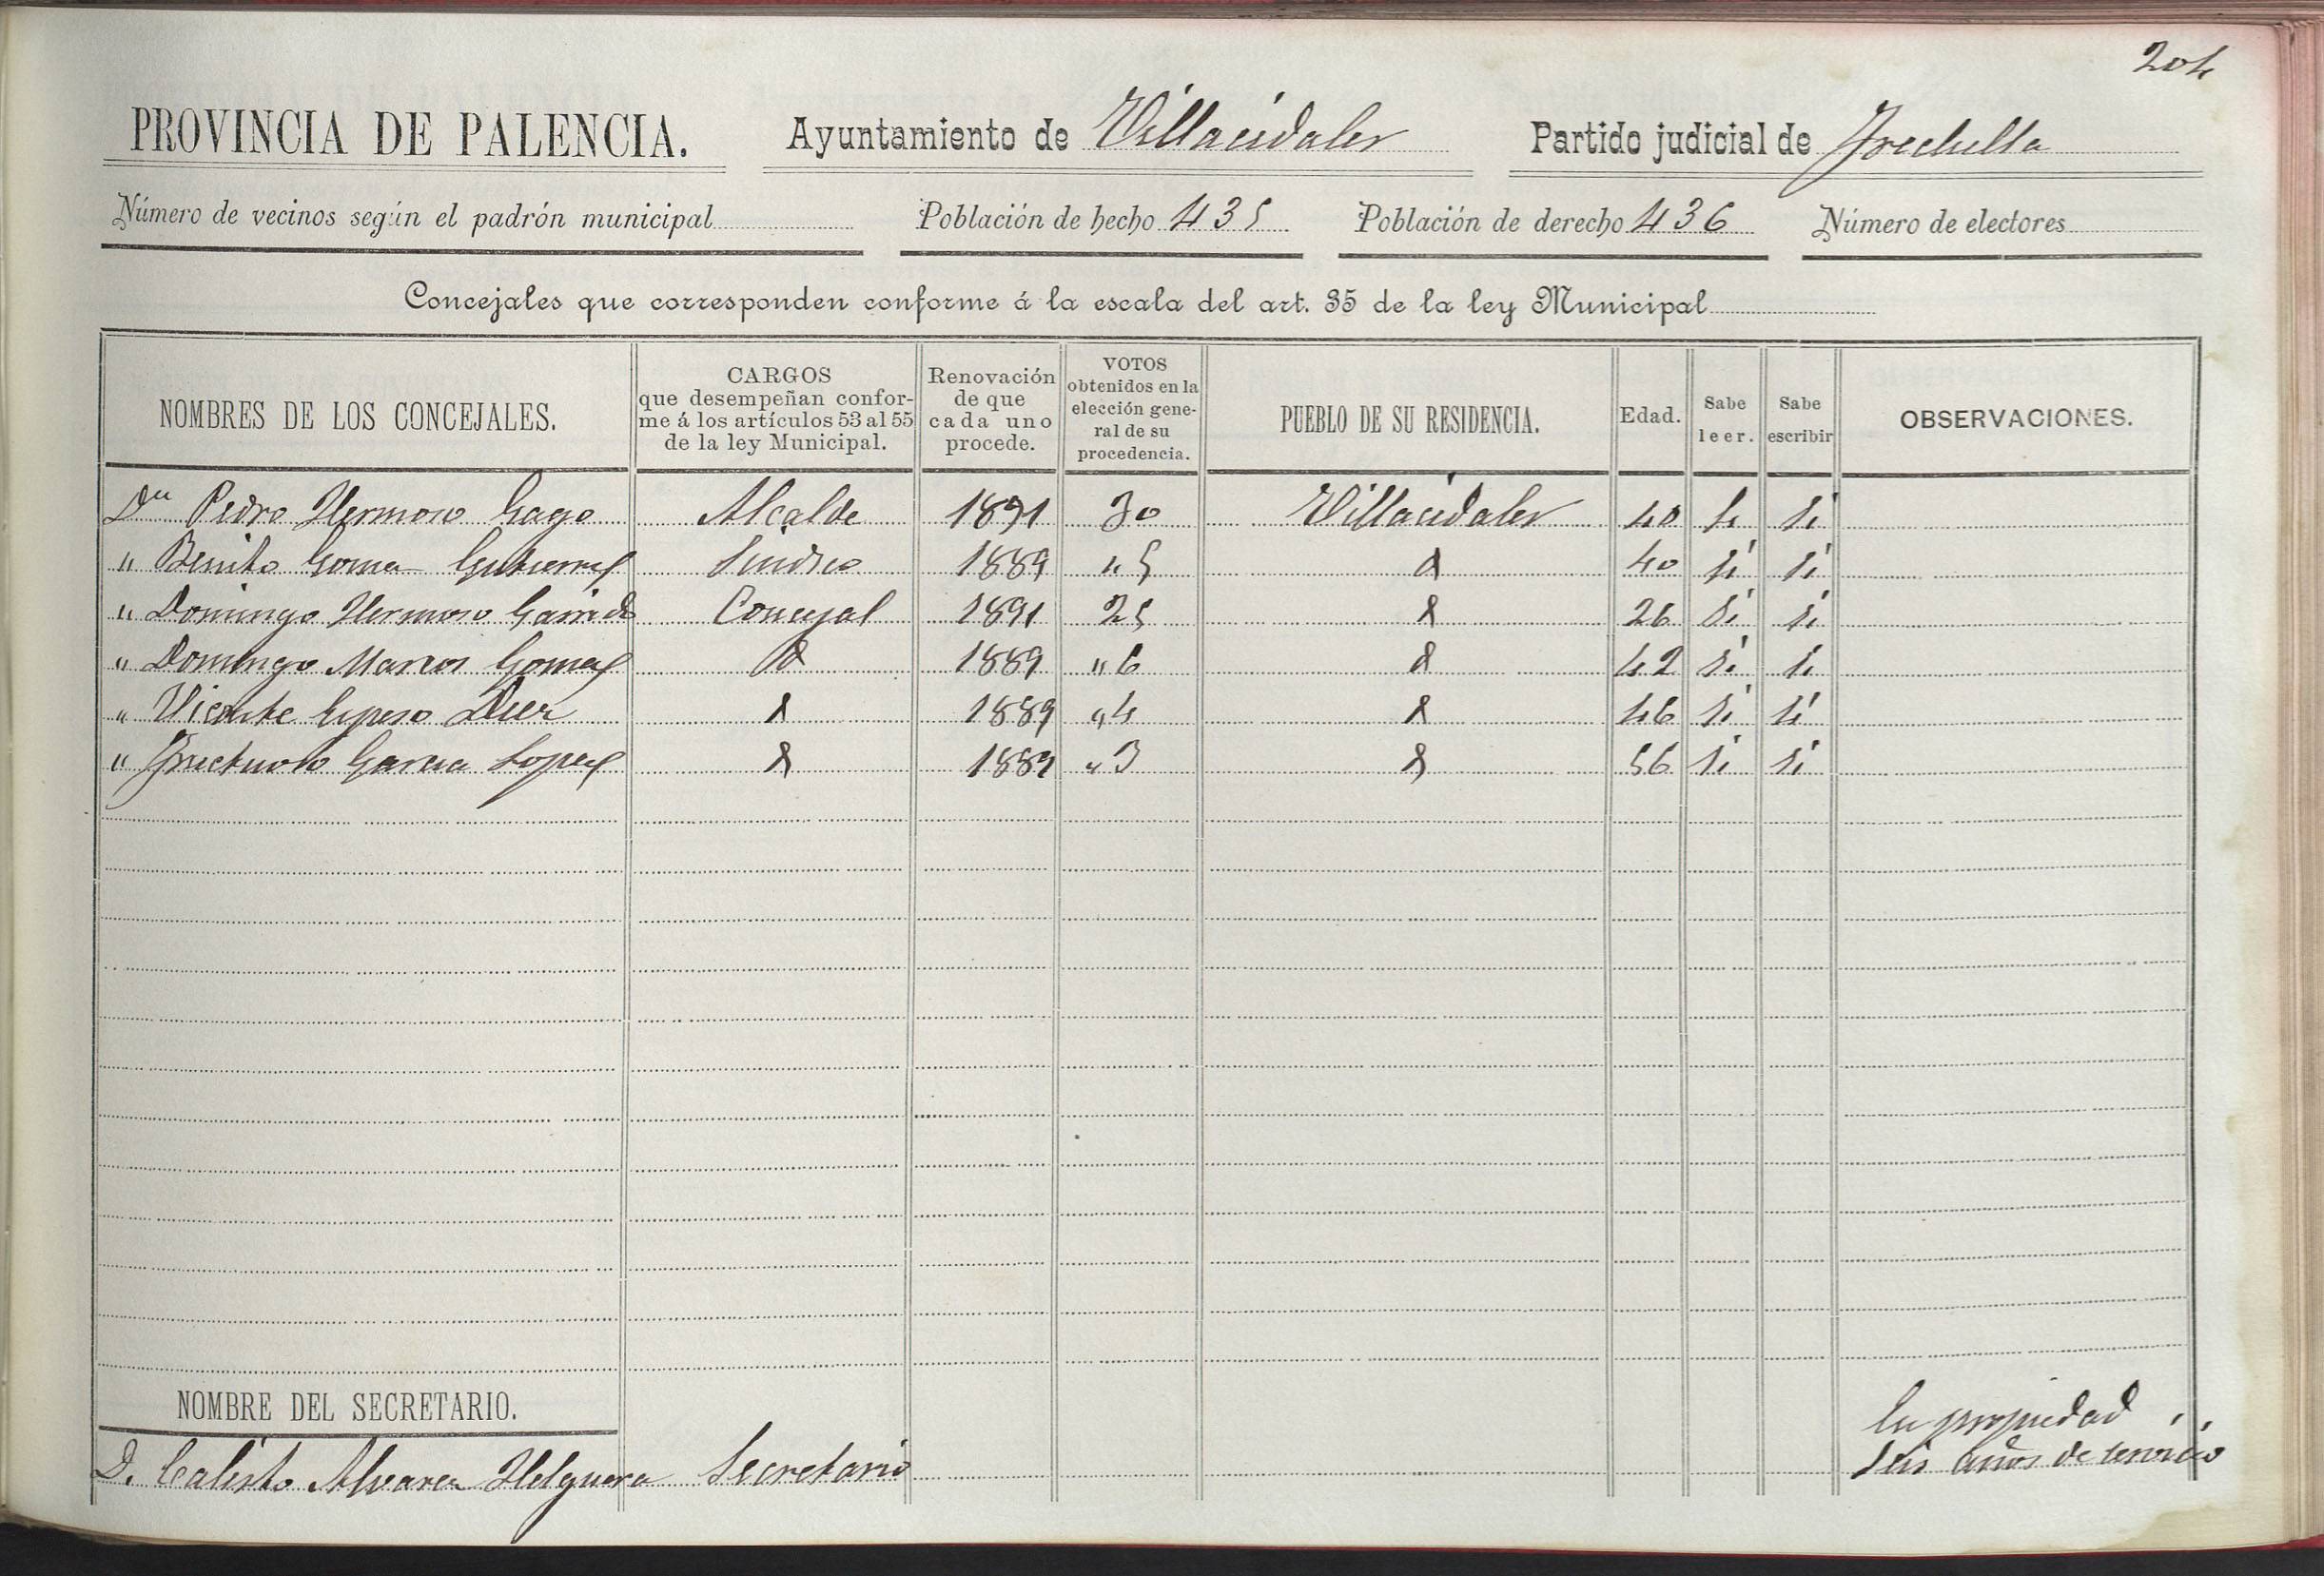 204
PROVINCIA DE PALENCIA. Ayuntamiento de Villacidaler Partido judicial de Frechilla
Número de vecinos según el padrón municipal Población de hecho 435 Población de derecho 436 Número de electores
Concejales que corresponden conforme á la escala del art. 35 de la ley Municipal
NOMBRES DE LOS CONCEJALES. CARGOS que desempeñan conforme á los artículos 53 al 55 de la ley Municipal. Renovación de que cada uno procede. VOTOS obtenidos en la elección general de su procedencia. PUEBLO DE SU RESIDENCIA. Edad. Sabe leer. Sabe escribir OBSERVACIONES.
Dn Pedro Hermoso Gago Alcalde 1891 30 Villacidaler 40 si si
" Benito Goma Gutierrez Sindico 1889 "5 d 40 si si
" Domingo Hermoso Garrido Concejal 1891 25 d 26 si si
" Domingo Marcos Gomez d 1889 "6 d 42 si si
" Vicente Espeso Diez d 1889 "4 d 46 si si
" Fructuoso Garcia Lopez d 1889 "3 d 56 si si
NOMBRE DEL SECRETARIO.
D. Calisto Alvarez Helguera Secretario
En propiedad
seis años de servicio